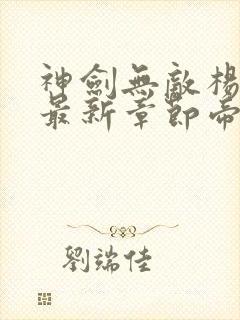 神劍無敵楊
最新章節帝
劉端佳